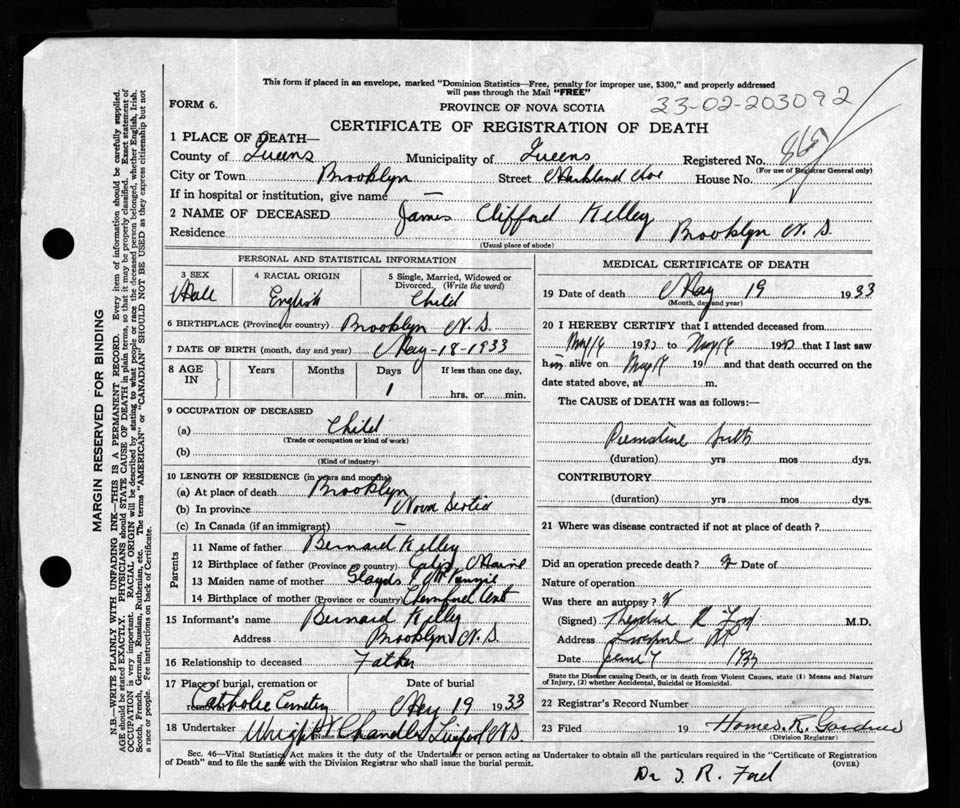 This form if placed in an envelope, marked "Dominion Statistics—Free, penalty for improper use, $300," and properly addressed
will pass through the Mail "FREE"
FORM 6.
PROVINCE OF NOVA SCOTIA
33-02-203092
CERTIFICATE OF REGISTRATION OF DEATH
1 PLACE OF DEATH—
County of Queens Municipality of Queens Registered No.
(For use of Registrar General only)
City or Town Brooklyn Street House No.
If in hospital or institution, give name —
2 NAME OF DECEASED James Clifford Kelley
Residence Brooklyn N.S.
(Usual place of abode)
PERSONAL AND STATISTICAL INFORMATION
3 SEX 4 RACIAL ORIGIN 5 Single, Married, Widowed or
Divorced. (Write the word)
Male English Child
6 BIRTHPLACE (Province or country) Brooklyn N.S.
7 DATE OF BIRTH (month, day and year) May-18-1933
8 AGE IN Years Months Days If less than one day,
1 hrs. or min.
9 OCCUPATION OF DECEASED
(a) Child
(Trade or occupation or kind of work)
(b)
(Kind of industry)
10 LENGTH OF RESIDENCE (in years and months)
(a) At place of death Brooklyn
(b) In province Nova Scotia
(c) In Canada (if an immigrant) —
Parents
11 Name of father Bernard Kelley
12 Birthplace of father (Province or country) Maine
13 Maiden name of mother
14 Birthplace of mother (Province or country)
15 Informant's name Bernard Kelley
Address Brooklyn N.S.
16 Relationship to deceased Father
17 Place of burial, cremation or Date of burial
Catholic Cemetery May 19 1933
18 Undertaker Wright & Chandler N.S.
MEDICAL CERTIFICATE OF DEATH
19 Date of death May 19 1933
(Month, day and year)
20 I HEREBY CERTIFY that I attended deceased from
19 to 19 that I last saw
him alive on 19 and that death occurred on the
date stated above, at m.
The CAUSE of DEATH was as follows:—
Premature birth
(duration) yrs mos dys.
CONTRIBUTORY
(duration) yrs mos dys.
21 Where was disease contracted if not at place of death?
Did an operation precede death? Date of
Nature of operation
Was there an autopsy?
(Signed) M.D.
Address
Date
State the Disease causing Death, or in death from Violent Causes, state (1) Means and
Nature of Injury, (2) whether Accidental, Suicidal or Homicidal.
22 Registrar's Record Number
23 Filed 19
(Division Registrar)
Sec. 46—Vital Statistics Act makes it the duty of the Undertaker or person acting as Undertaker to obtain all the particulars required in the "Certificate of Registration
of Death" and to file the same with the Division Registrar who shall issue the burial permit.
(OVER)
MARGIN RESERVED FOR BINDING
N.B.—WRITE PLAINLY WITH UNFADING INK—THIS IS A PERMANENT RECORD. Every item of information should be carefully supplied.
AGE should be stated EXACTLY. PHYSICIANS should STATE CAUSE OF DEATH in plain terms, so that it may be properly classified. Exact statement of
OCCUPATION is very important. RACIAL ORIGIN will be described by stating to what people or race the deceased person belonged, whether English, Irish,
Scotch, French, German, Russian, Ruthenian, etc. The terms "AMERICAN" or "CANADIAN" SHOULD NOT BE USED as they express citizenship but not
a race or people. Fee instructions on back of Certificate.